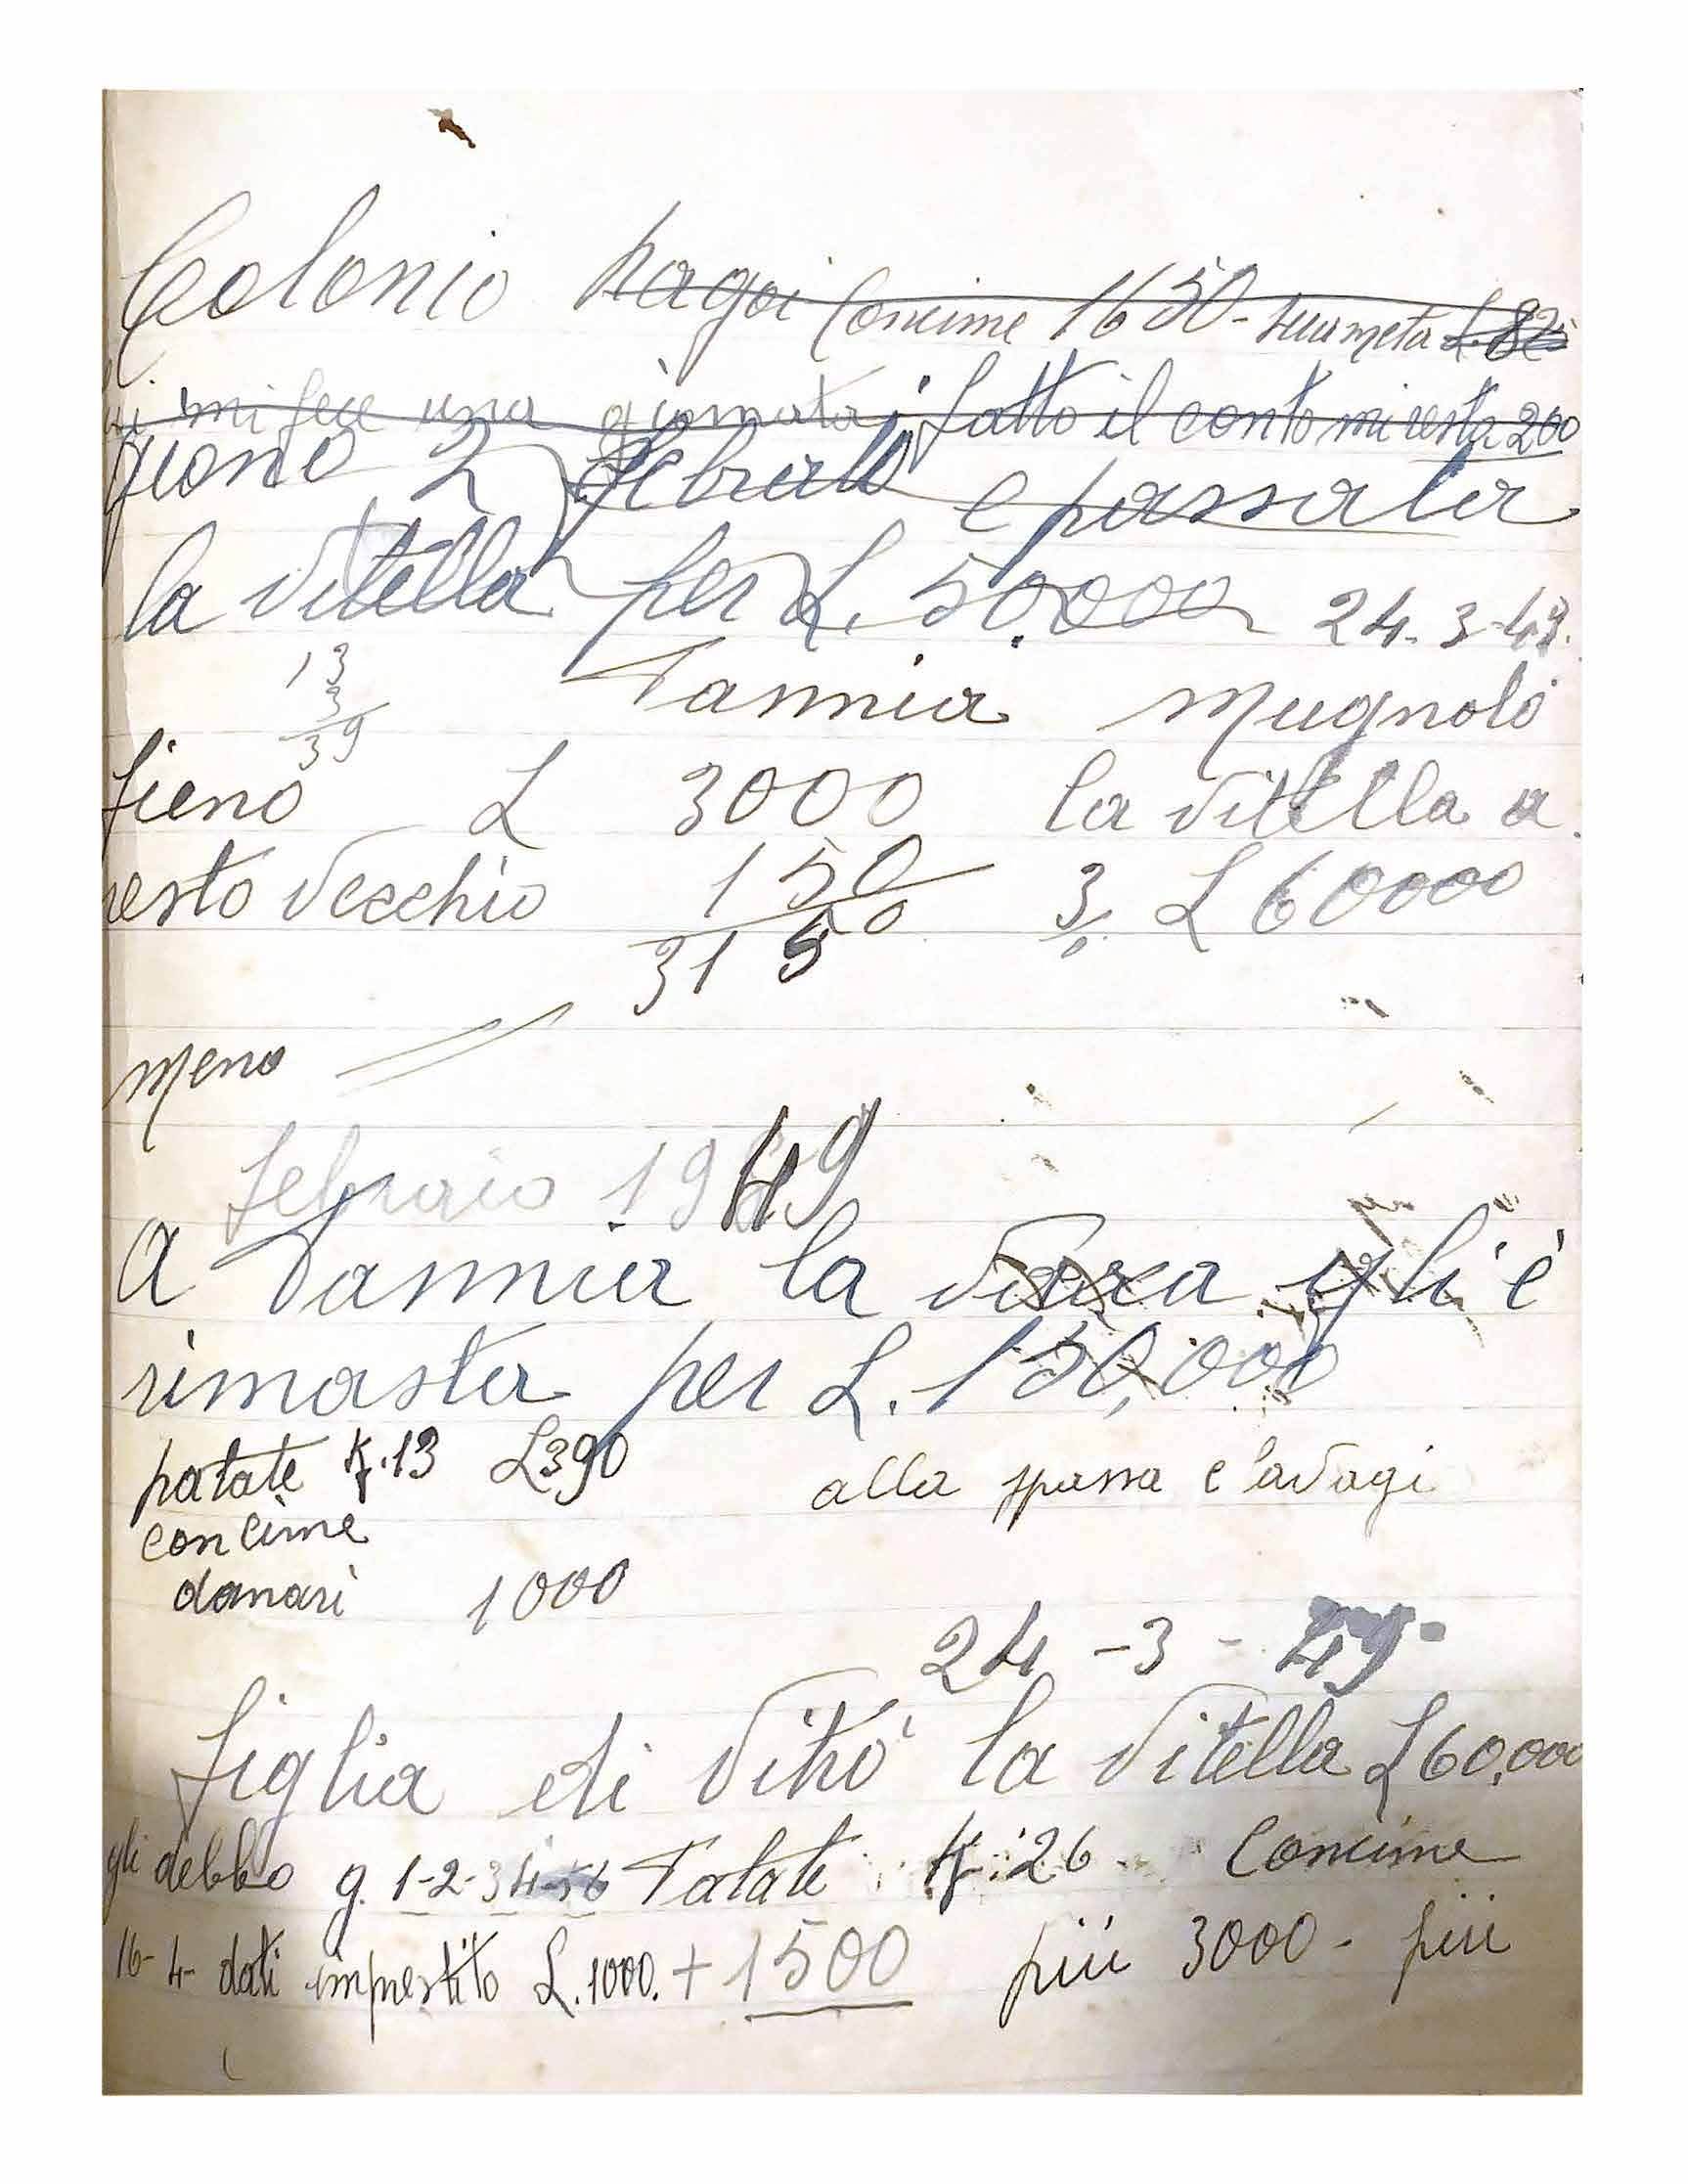 Colonio pagai Concime 1650 - sua metà L. 825
mi fece una giornata fatto il conto mi resta 200
giono 2 febraio e passata
la vitella per L. 50.000 24-3-49.
13
3
39
Tannia Mugnolo
fieno L 3000 la vitella a
resto vecchio 150 3/0 L 60000
315
meno
febraio 1949
A Tannia la vacca gli è
rimasta per L. 150,000
patate K.13 L390 alla spassa e lavagi
concime
danari 1000
24-3-49
figlia di Vito la vitella L 60,000
gli debbo g. 1-2-3 4-5 6 Patate K:26 Concime
16-4- dati impestito L.1000. + 1500 più 3000 - più